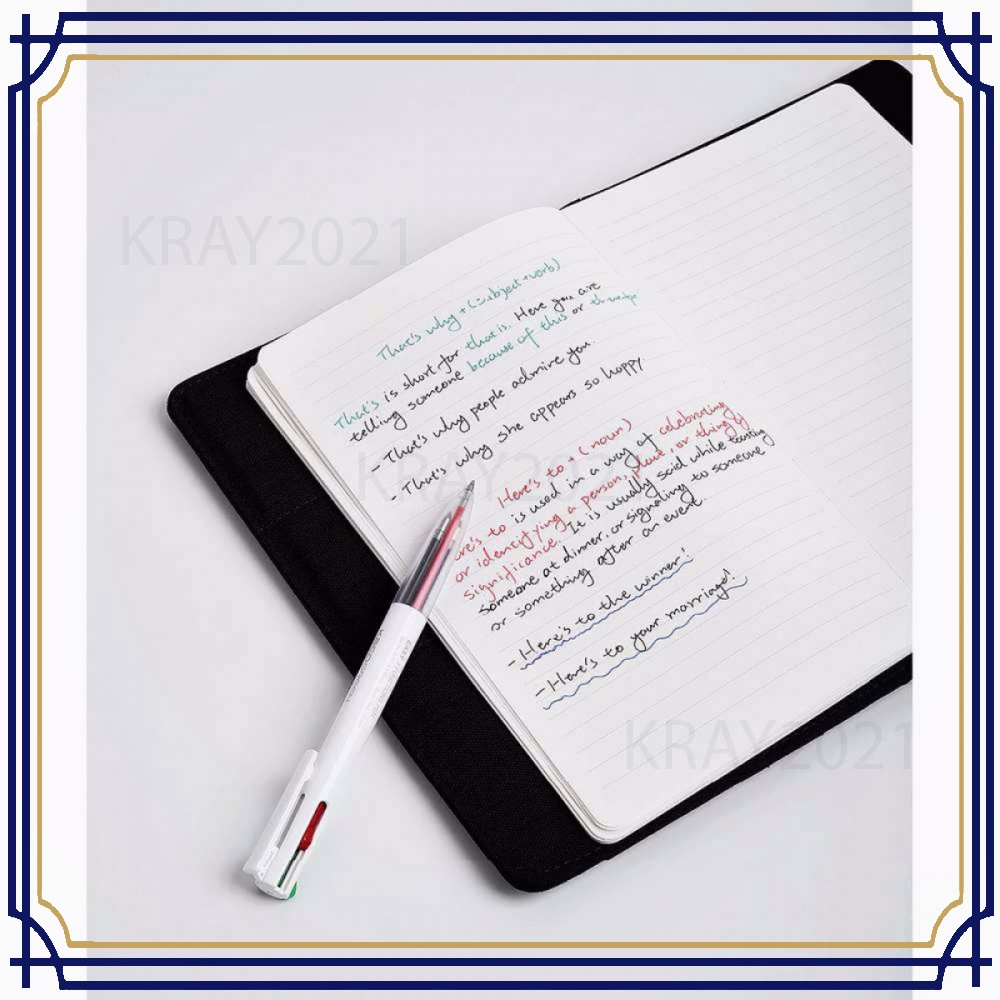 KRAY2021
That's why + (subject+verb)
That's is short for that is. Here you are
telling someone because of this or
- That's why people admire you.
- That's why she appears so happy
KRAY2021
Here's to + (noun)
re's to is used in a way of celebrating
or identifying a person, place, or thing of
significance. It is usually said while toasting
someone at dinner, or signaling to someone
or something after an event.
- Here's to the winner!
- Here's to your marriage!
KRAY2021